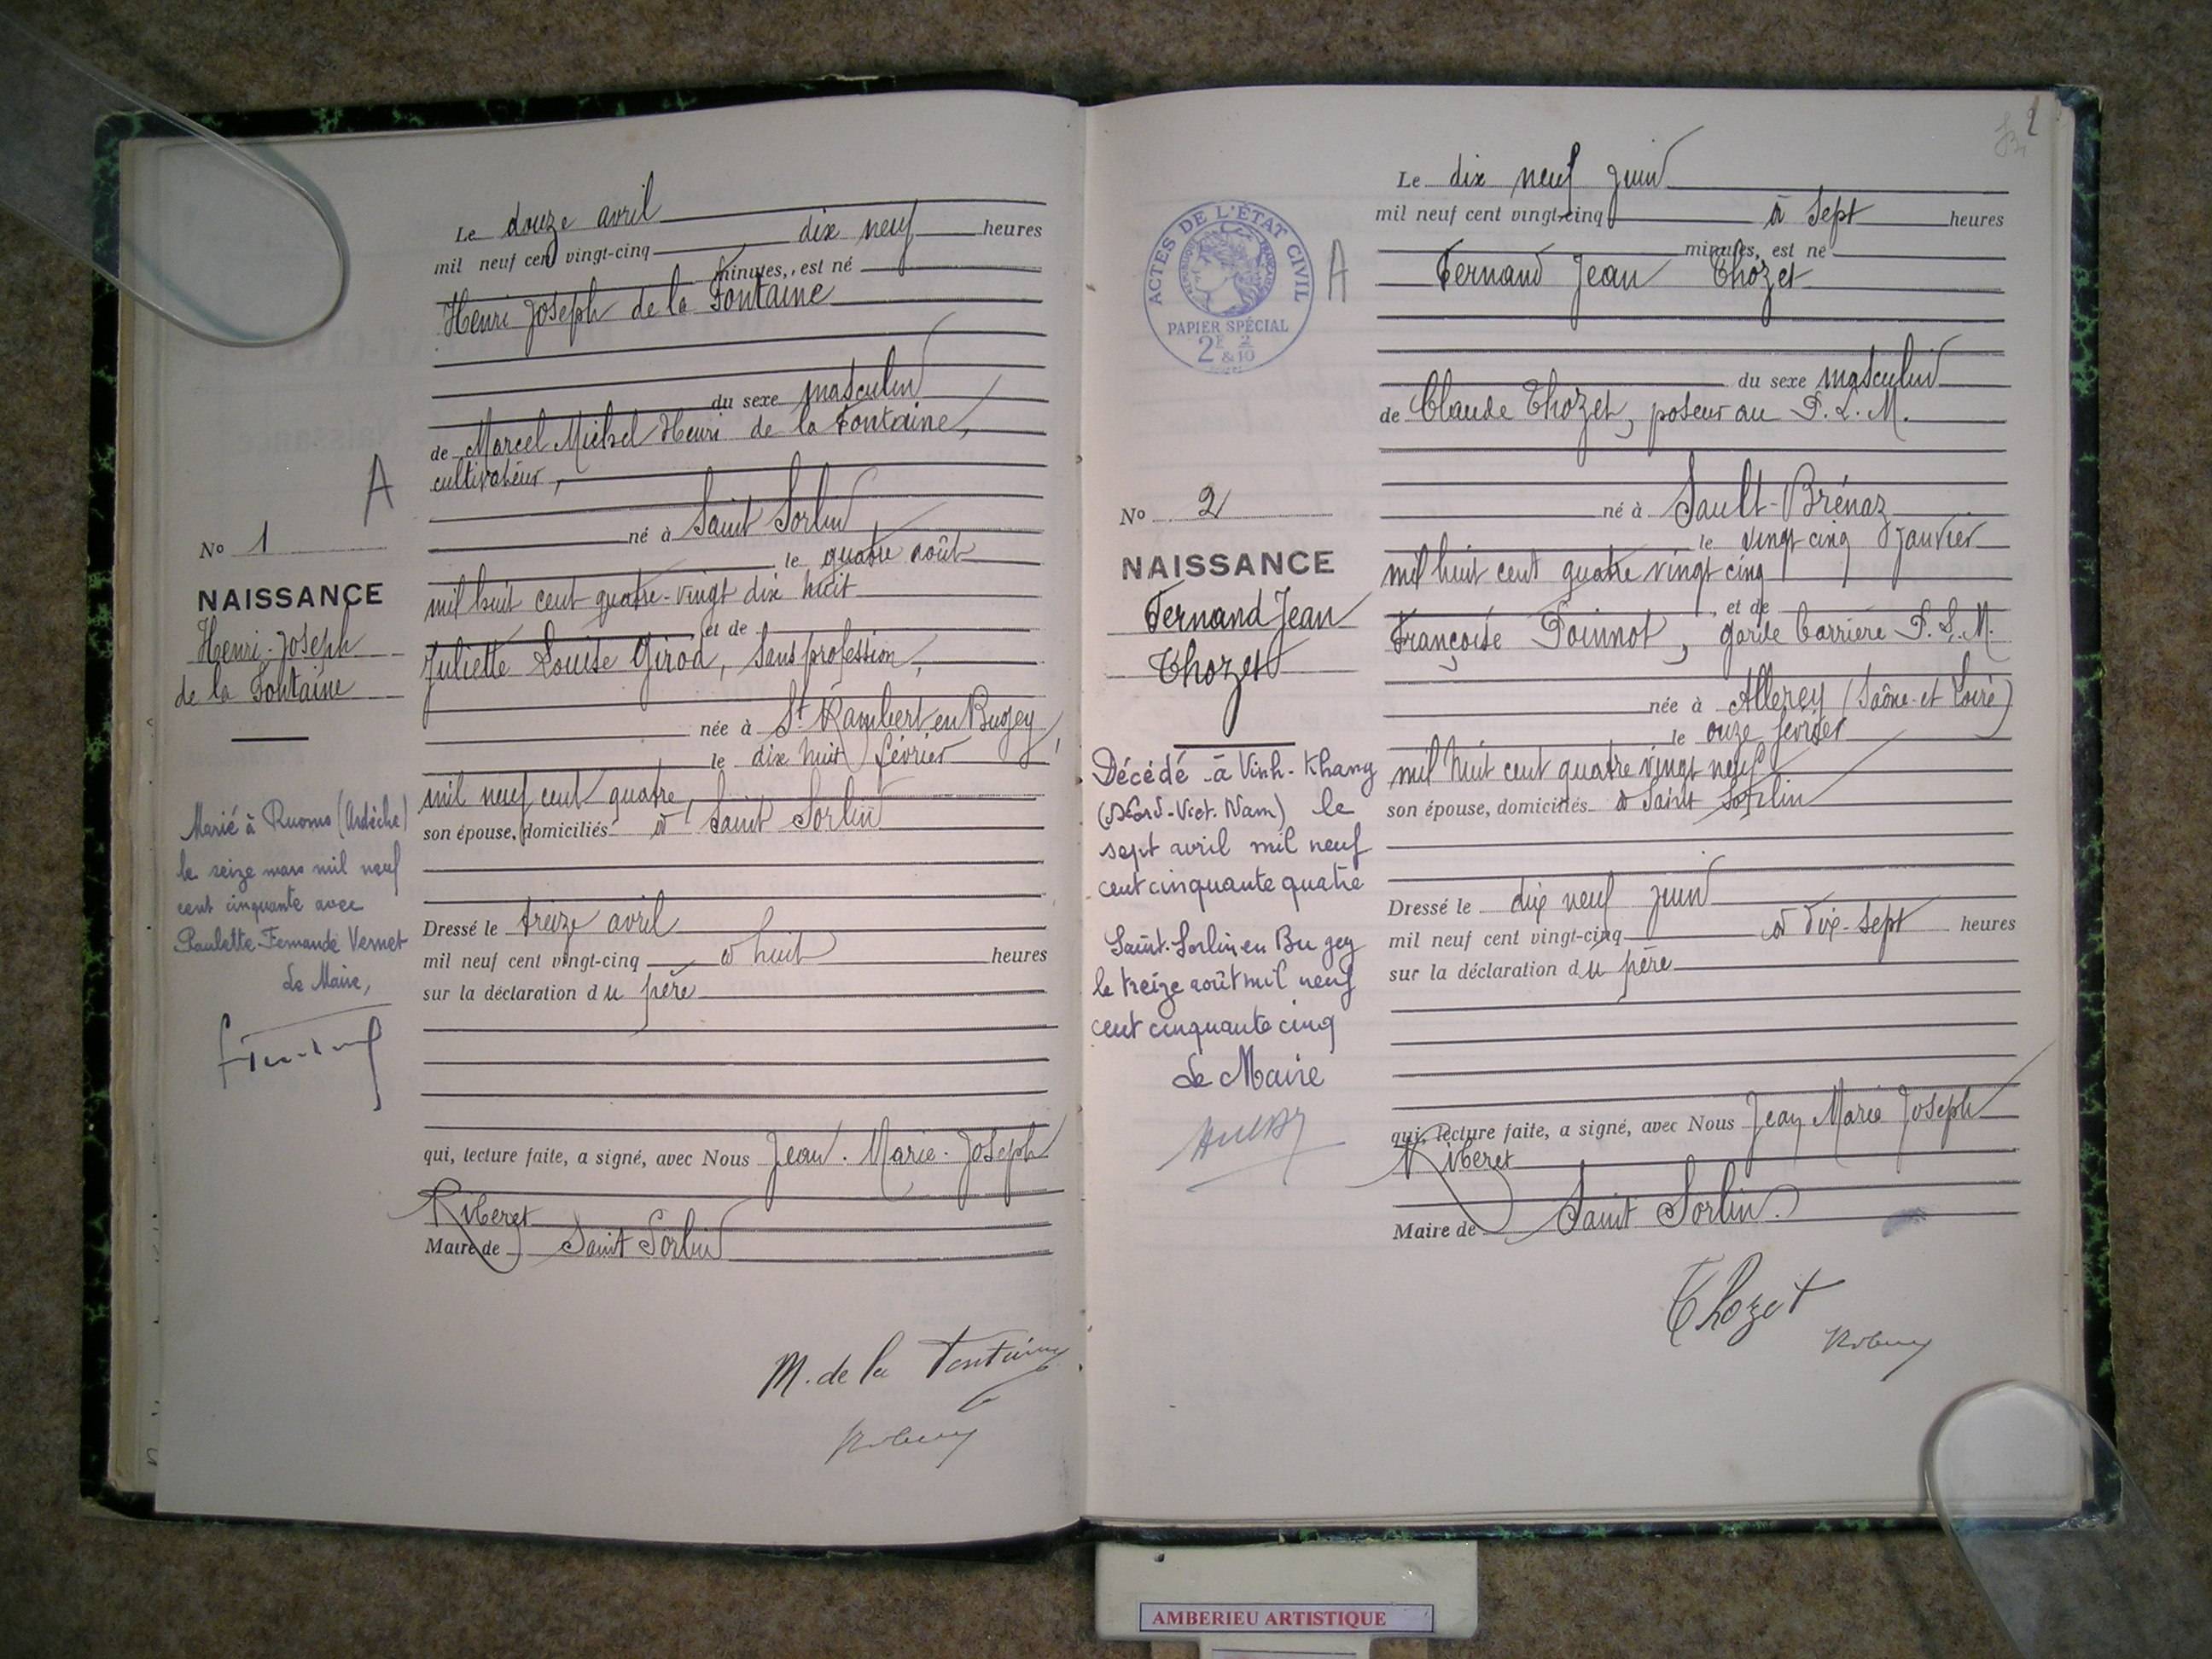 Le douze avril
mil neuf cent vingt-cinq dix neuf heures
minutes, est né
Henri Joseph de la Fontaine
du sexe masculin
de Marcel Michel Henri de la Fontaine,
cultivateur,
né à Saint Sorlin
le quatre août
mil huit cent quatre-vingt dix huit
et de
Juliette Louise Girod, sans profession,
née à St Rambert en Bugey,
le dix huit février
mil neuf cent quatre,
son épouse, domiciliés à Saint Sorlin
Dressé le treize avril
mil neuf cent vingt-cinq à huit heures
sur la déclaration du père
qui, lecture faite, a signé, avec Nous Jean-Marie-Joseph
Riberet
Maire de Saint Sorlin
M. de la Fontaine
A
No 1
NAISSANCE
Henri-Joseph
de la Fontaine
Marié à Ruoms (Ardèche)
le seize mars mil neuf
cent cinquante avec
Paulette Fernande Vernet
Le Maire,
2
ACTES DE L'ÉTAT CIVIL
PAPIER SPÉCIAL
2F & 2/10
A
Le dix neuf juin
mil neuf cent vingt-cinq à sept heures
minutes, est né
Fernand Jean Thozet
du sexe masculin
de Claude Thozet, poseur au P. L. M.
né à Sault-Brénaz
le vingt cinq janvier
mil huit cent quatre vingt cinq
, et de
Françoise Poinnot, garde barrière P. L. M.
née à Allerey (Saône-et-Loire)
le onze février
mil huit cent quatre vingt neuf
son épouse, domiciliés à Saint Sorlin
Dressé le dix neuf juin
mil neuf cent vingt-cinq à dix-sept heures
sur la déclaration du père
qui, lecture faite, a signé, avec Nous Jean Marie Joseph
Riberet
Maire de Saint Sorlin
Thozet
No 2
NAISSANCE
Fernand Jean
Thozet
Décédé à Vinh-Khang
(Nord-Viet-Nam) le
sept avril mil neuf
cent cinquante quatre
Saint-Sorlin en Bugey
le treize août mil neuf
cent cinquante cinq
Le Maire
AMBERIEU ARTISTIQUE